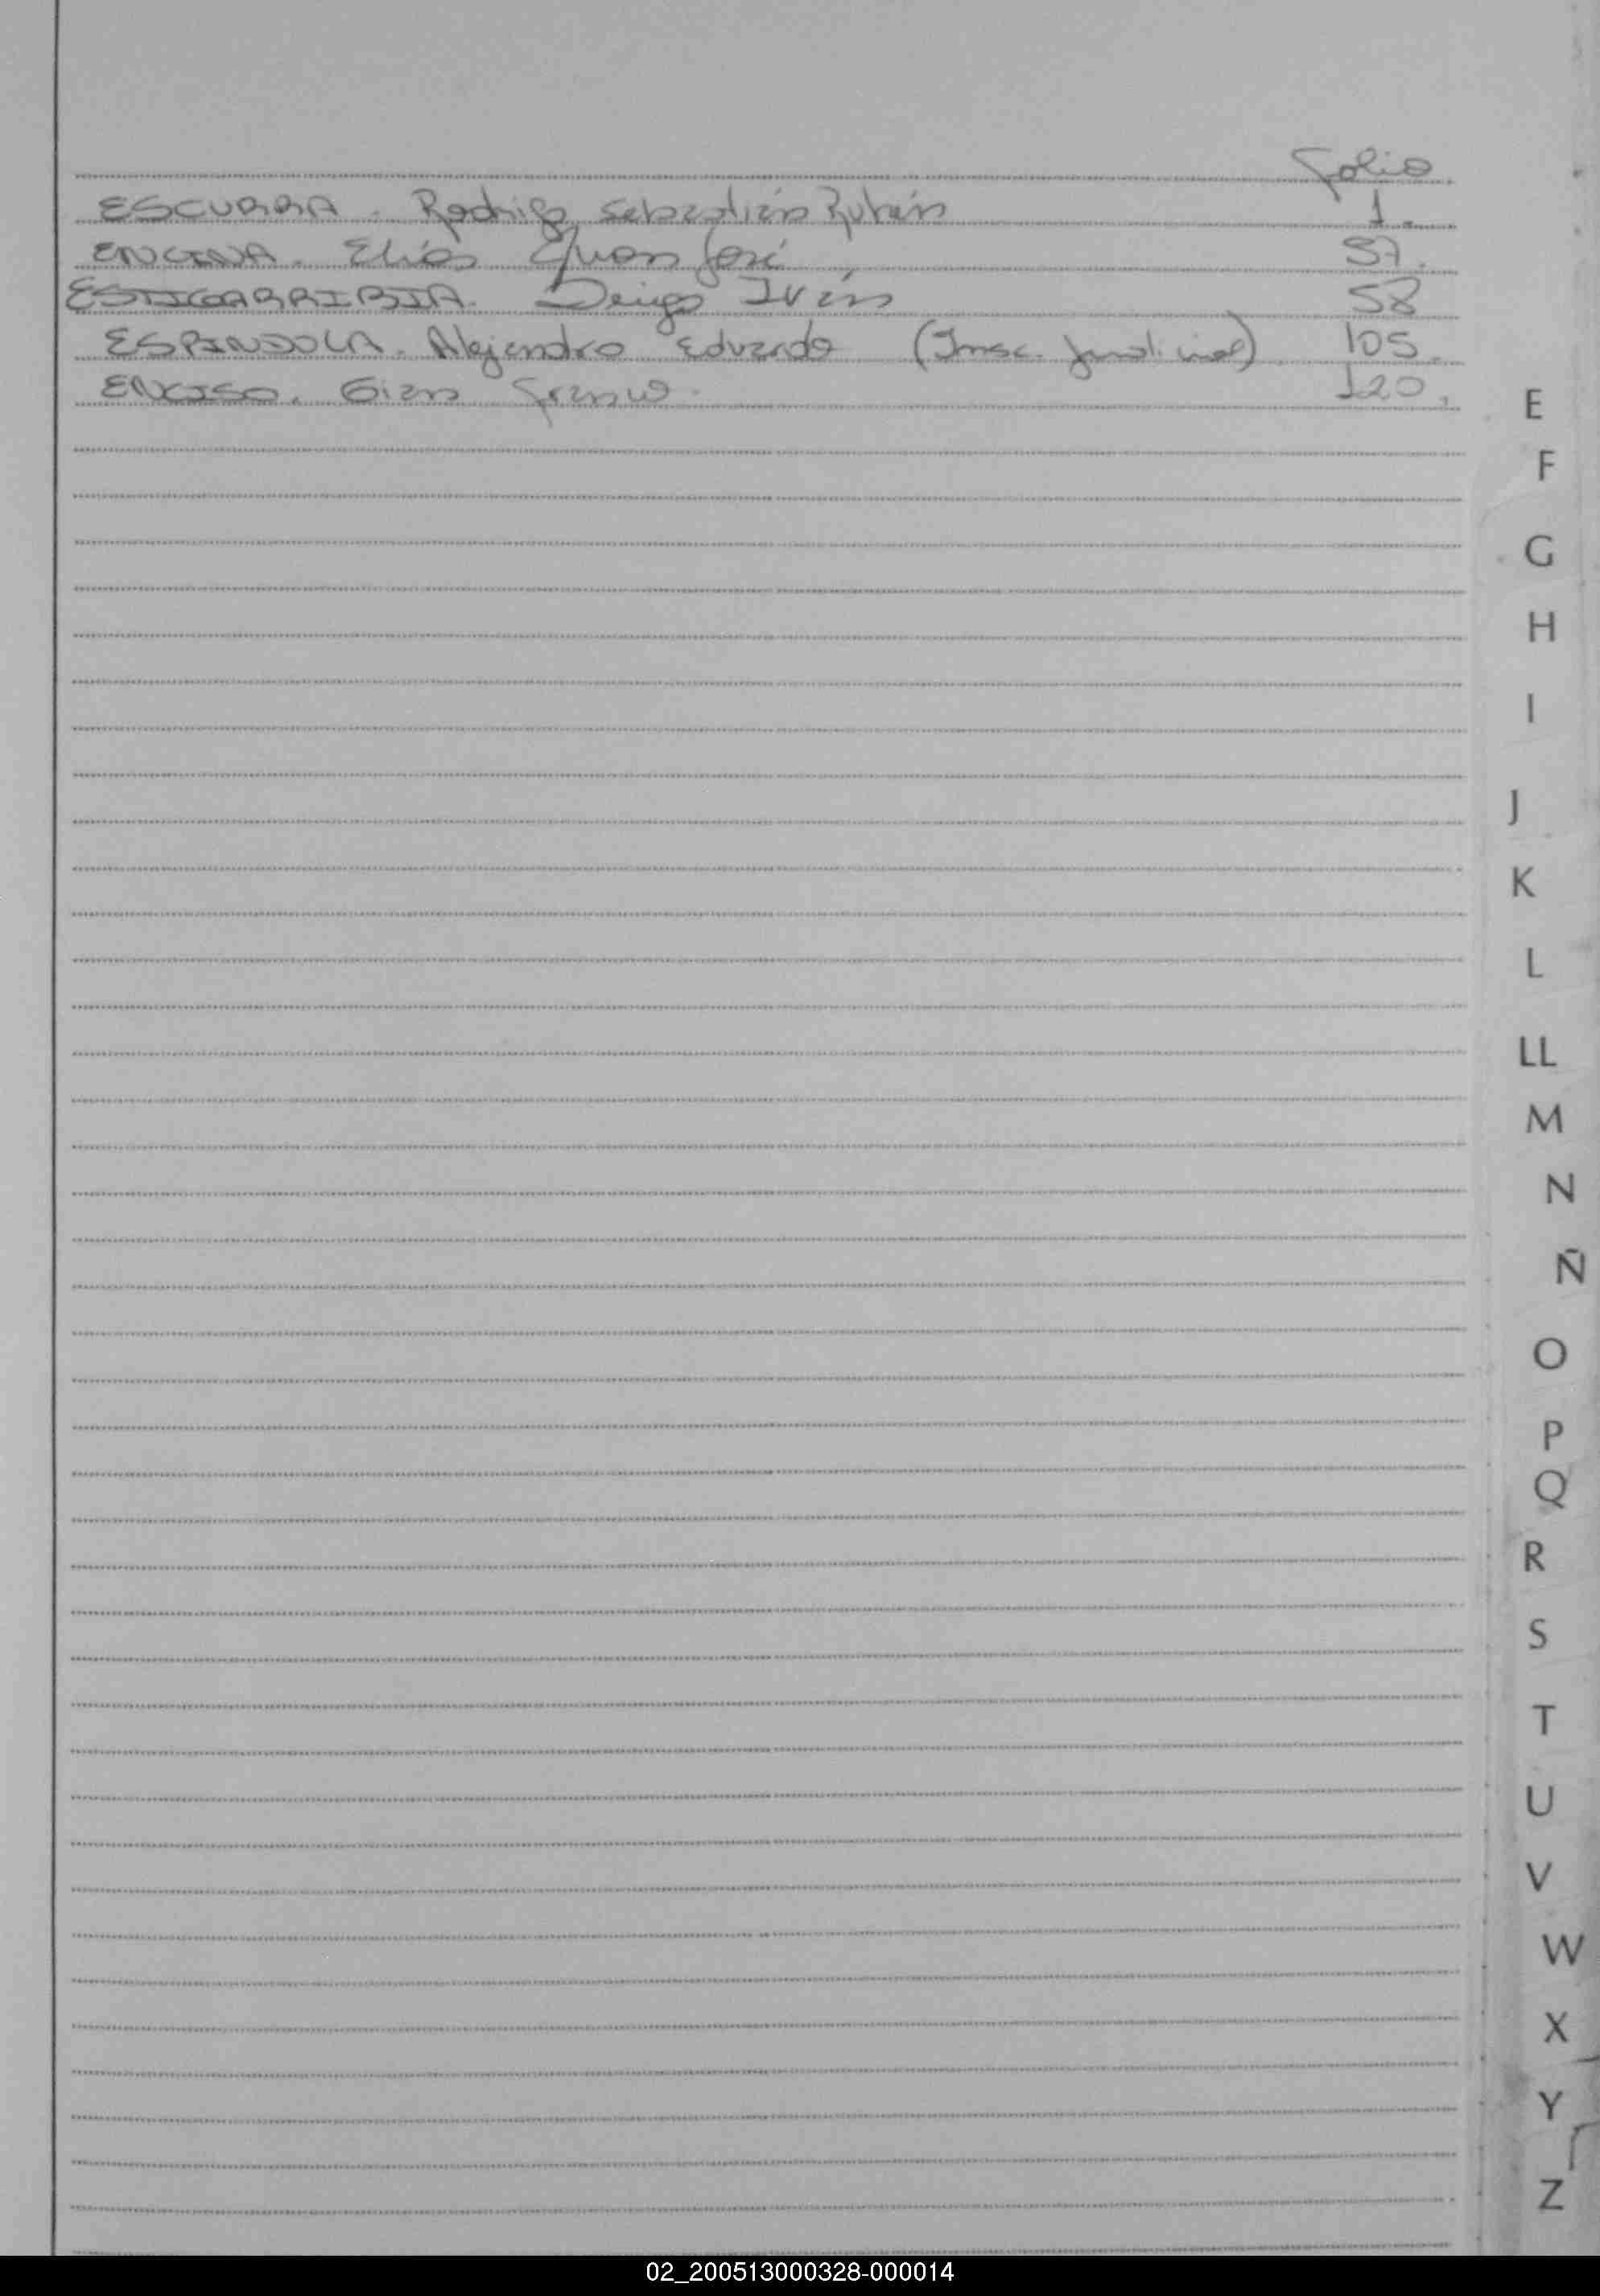 Folio
ESCURRA. Rodrigo Sebastián Rubén 1.
ENCINA. Elías Juan José 57.
ESTIGARRIBIA. Iván 58
ESPINDOLA. Alejandro Eduardo (Insc. Judicial) 105.
ENCISO. Gian Franco. 120.
E
F
G
H
I
J
K
L
LL
M
N
Ñ
O
P
Q
R
S
T
U
V
W
X
Y
Z
02_200513000328-000014